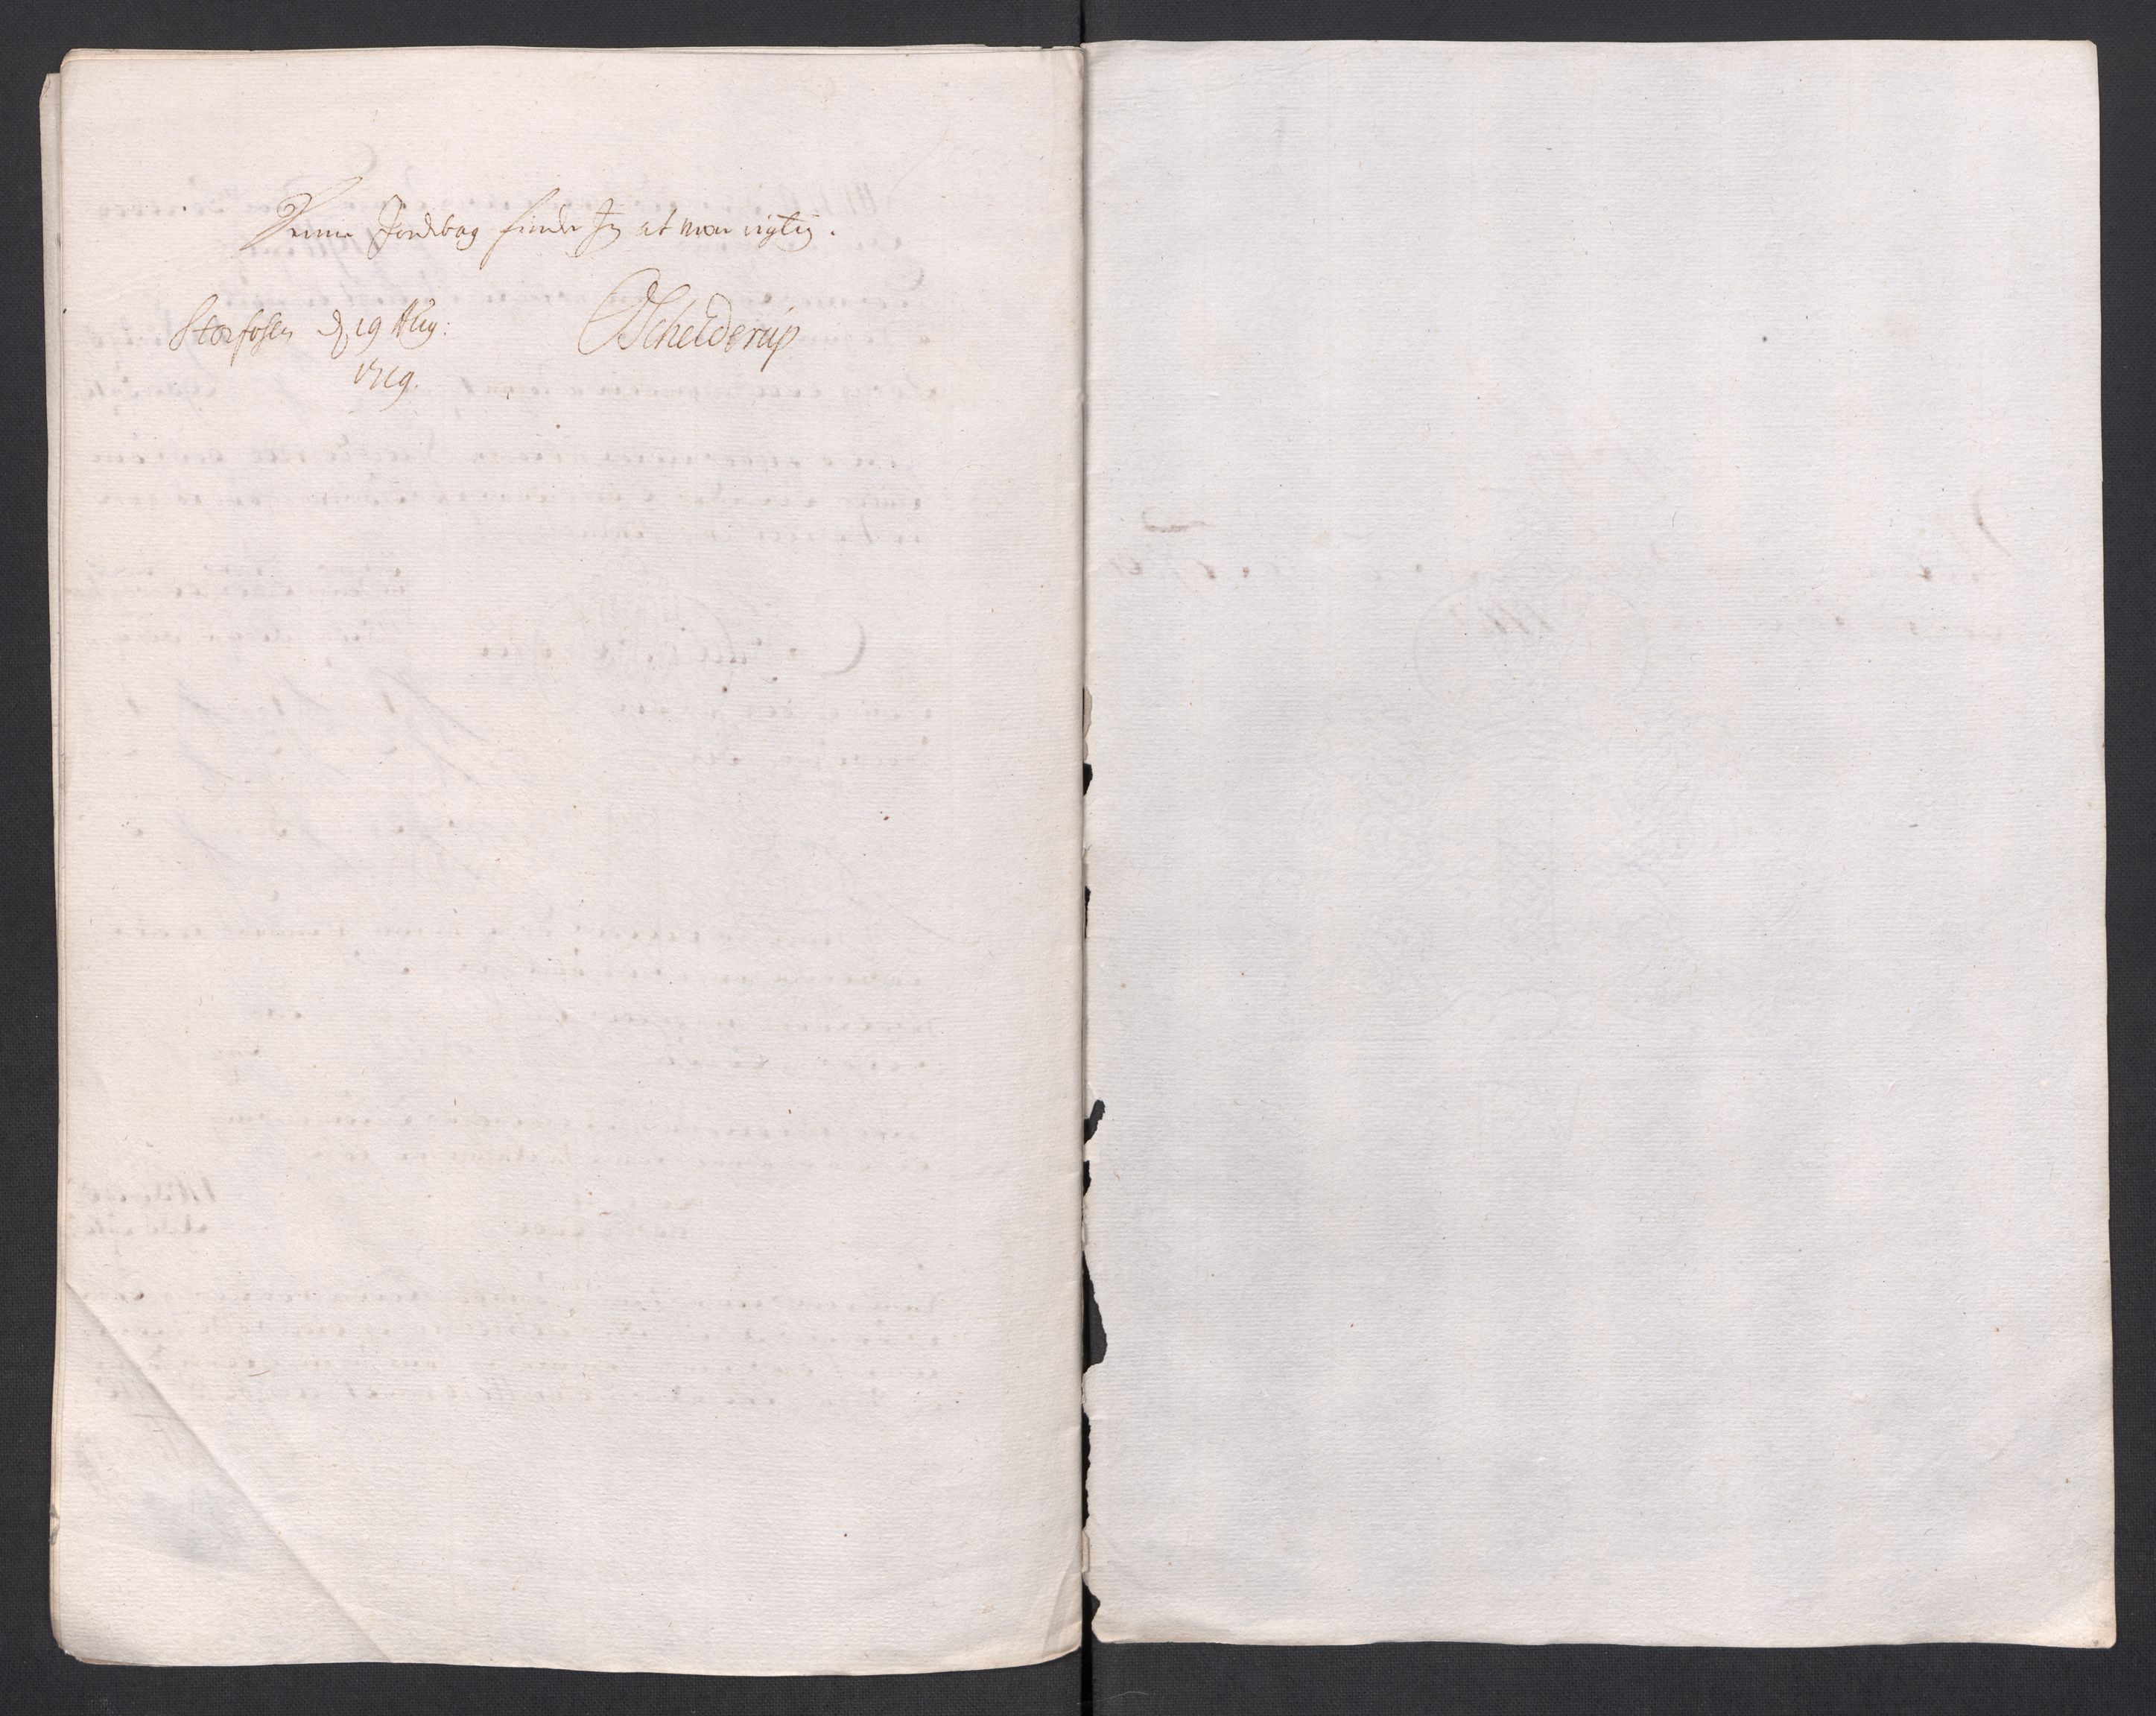 Denne Jordebog finder Jeg at være rigtig.
Storfosen d 19 Aug:
1719.
Schelderup